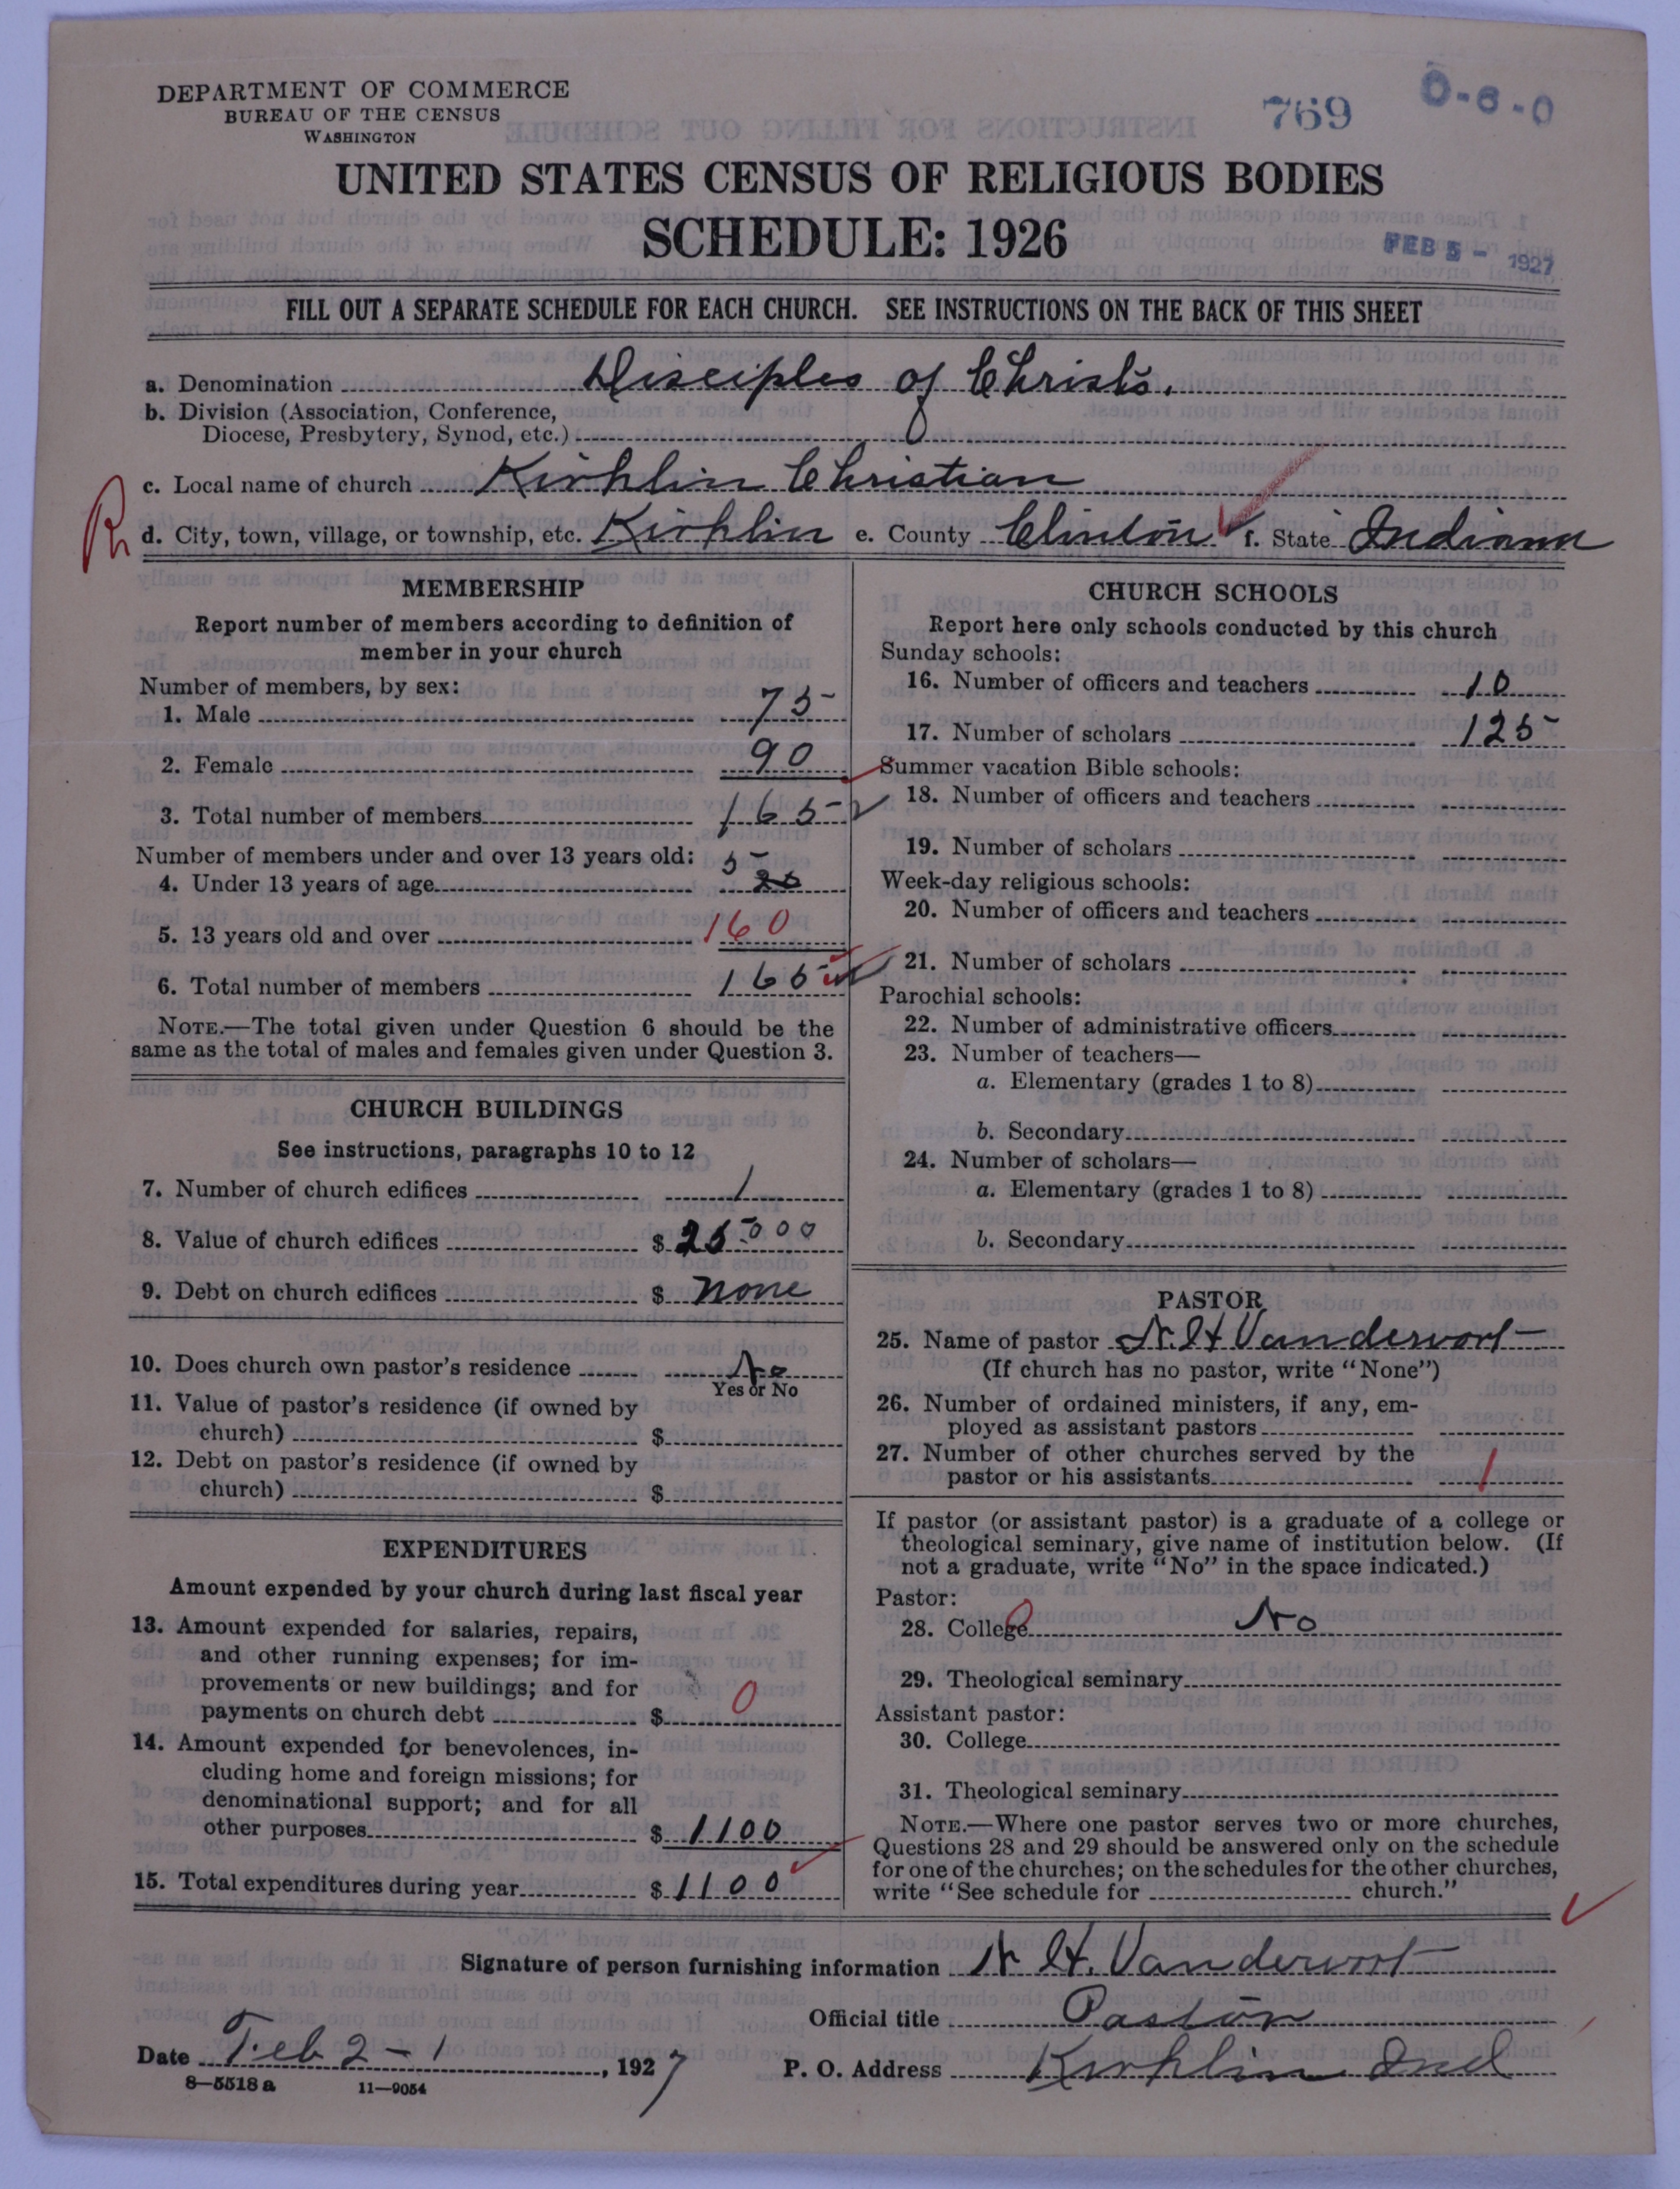 DEPARTMENT OF COMMERCE
BUREAU OF THE CENSUS
WASHINGTON
769
0-6-0
UNITED STATES CENSUS OF RELIGIOUS BODIES
SCHEDULE: 1926
FEB 5 - 1927
FILL OUT A SEPARATE SCHEDULE FOR EACH CHURCH. SEE INSTRUCTIONS ON THE BACK OF THIS SHEET
a. Denomination Disciples of Christs.
b. Division (Association, Conference,
Diocese, Presbytery, Synod, etc.)
c. Local name of church Kirklin Christian
d. City, town, village, or township, etc. Kirklin e. County Clinton f. State Indiana
MEMBERSHIP
Report number of members according to definition of
member in your church
Number of members, by sex:
1. Male 75
2. Female 90
3. Total number of members 165
Number of members under and over 13 years old:
4. Under 13 years of age 5
5. 13 years old and over 160
6. Total number of members 165
NOTE.—The total given under Question 6 should be the
same as the total of males and females given under Question 3.
CHURCH BUILDINGS
See instructions, paragraphs 10 to 12
7. Number of church edifices 1
8. Value of church edifices $ 25000
9. Debt on church edifices $ none
10. Does church own pastor's residence No
Yes or No
11. Value of pastor's residence (if owned by
church) $
12. Debt on pastor's residence (if owned by
church) $
EXPENDITURES
Amount expended by your church during last fiscal year
13. Amount expended for salaries, repairs,
and other running expenses; for im-
provements or new buildings; and for
payments on church debt $ 0
14. Amount expended for benevolences, in-
cluding home and foreign missions; for
denominational support; and for all
other purposes $ 1100
15. Total expenditures during year $ 1100
CHURCH SCHOOLS
Report here only schools conducted by this church
Sunday schools:
16. Number of officers and teachers 10
17. Number of scholars 125
Summer vacation Bible schools:
18. Number of officers and teachers
19. Number of scholars
Week-day religious schools:
20. Number of officers and teachers
21. Number of scholars
Parochial schools:
22. Number of administrative officers
23. Number of teachers—
a. Elementary (grades 1 to 8)
b. Secondary
24. Number of scholars—
a. Elementary (grades 1 to 8)
b. Secondary
PASTOR
25. Name of pastor N. H Vandervort
(If church has no pastor, write "None")
26. Number of ordained ministers, if any, em-
ployed as assistant pastors
27. Number of other churches served by the
pastor or his assistants 1
If pastor (or assistant pastor) is a graduate of a college or
theological seminary, give name of institution below. (If
not a graduate, write "No" in the space indicated.)
Pastor:
28. College No
29. Theological seminary
Assistant pastor:
30. College
31. Theological seminary
NOTE.—Where one pastor serves two or more churches,
Questions 28 and 29 should be answered only on the schedule
for one of the churches; on the schedules for the other churches,
write "See schedule for church."
Signature of person furnishing information N H. Vandervort
Official title Pastor
Date Feb 2-1, 1927 P. O. Address Kirklin Ind
8—5518 a 11—9054